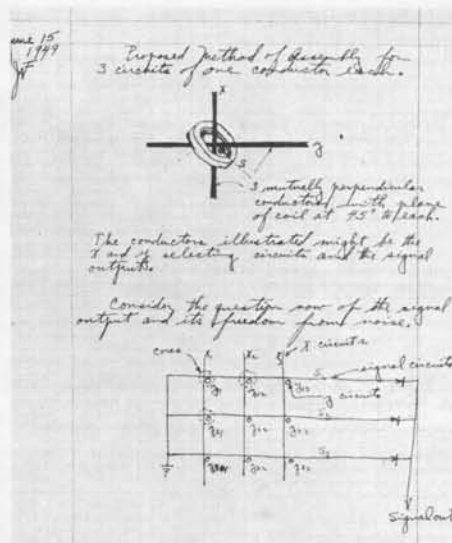 June 15
1949
Proposed Method of Assembly for
3 circuits of one conductor each.
x
y
3
3 mutually perpendicular
conductors with plane
of coil at 45° to each.
The conductors illustrated might be the
X and y selecting circuits and the signal
output.
Consider the question now of the signal
output and its freedom from noise.
X circuits
cores
signal circuits
y circuits
Signal out